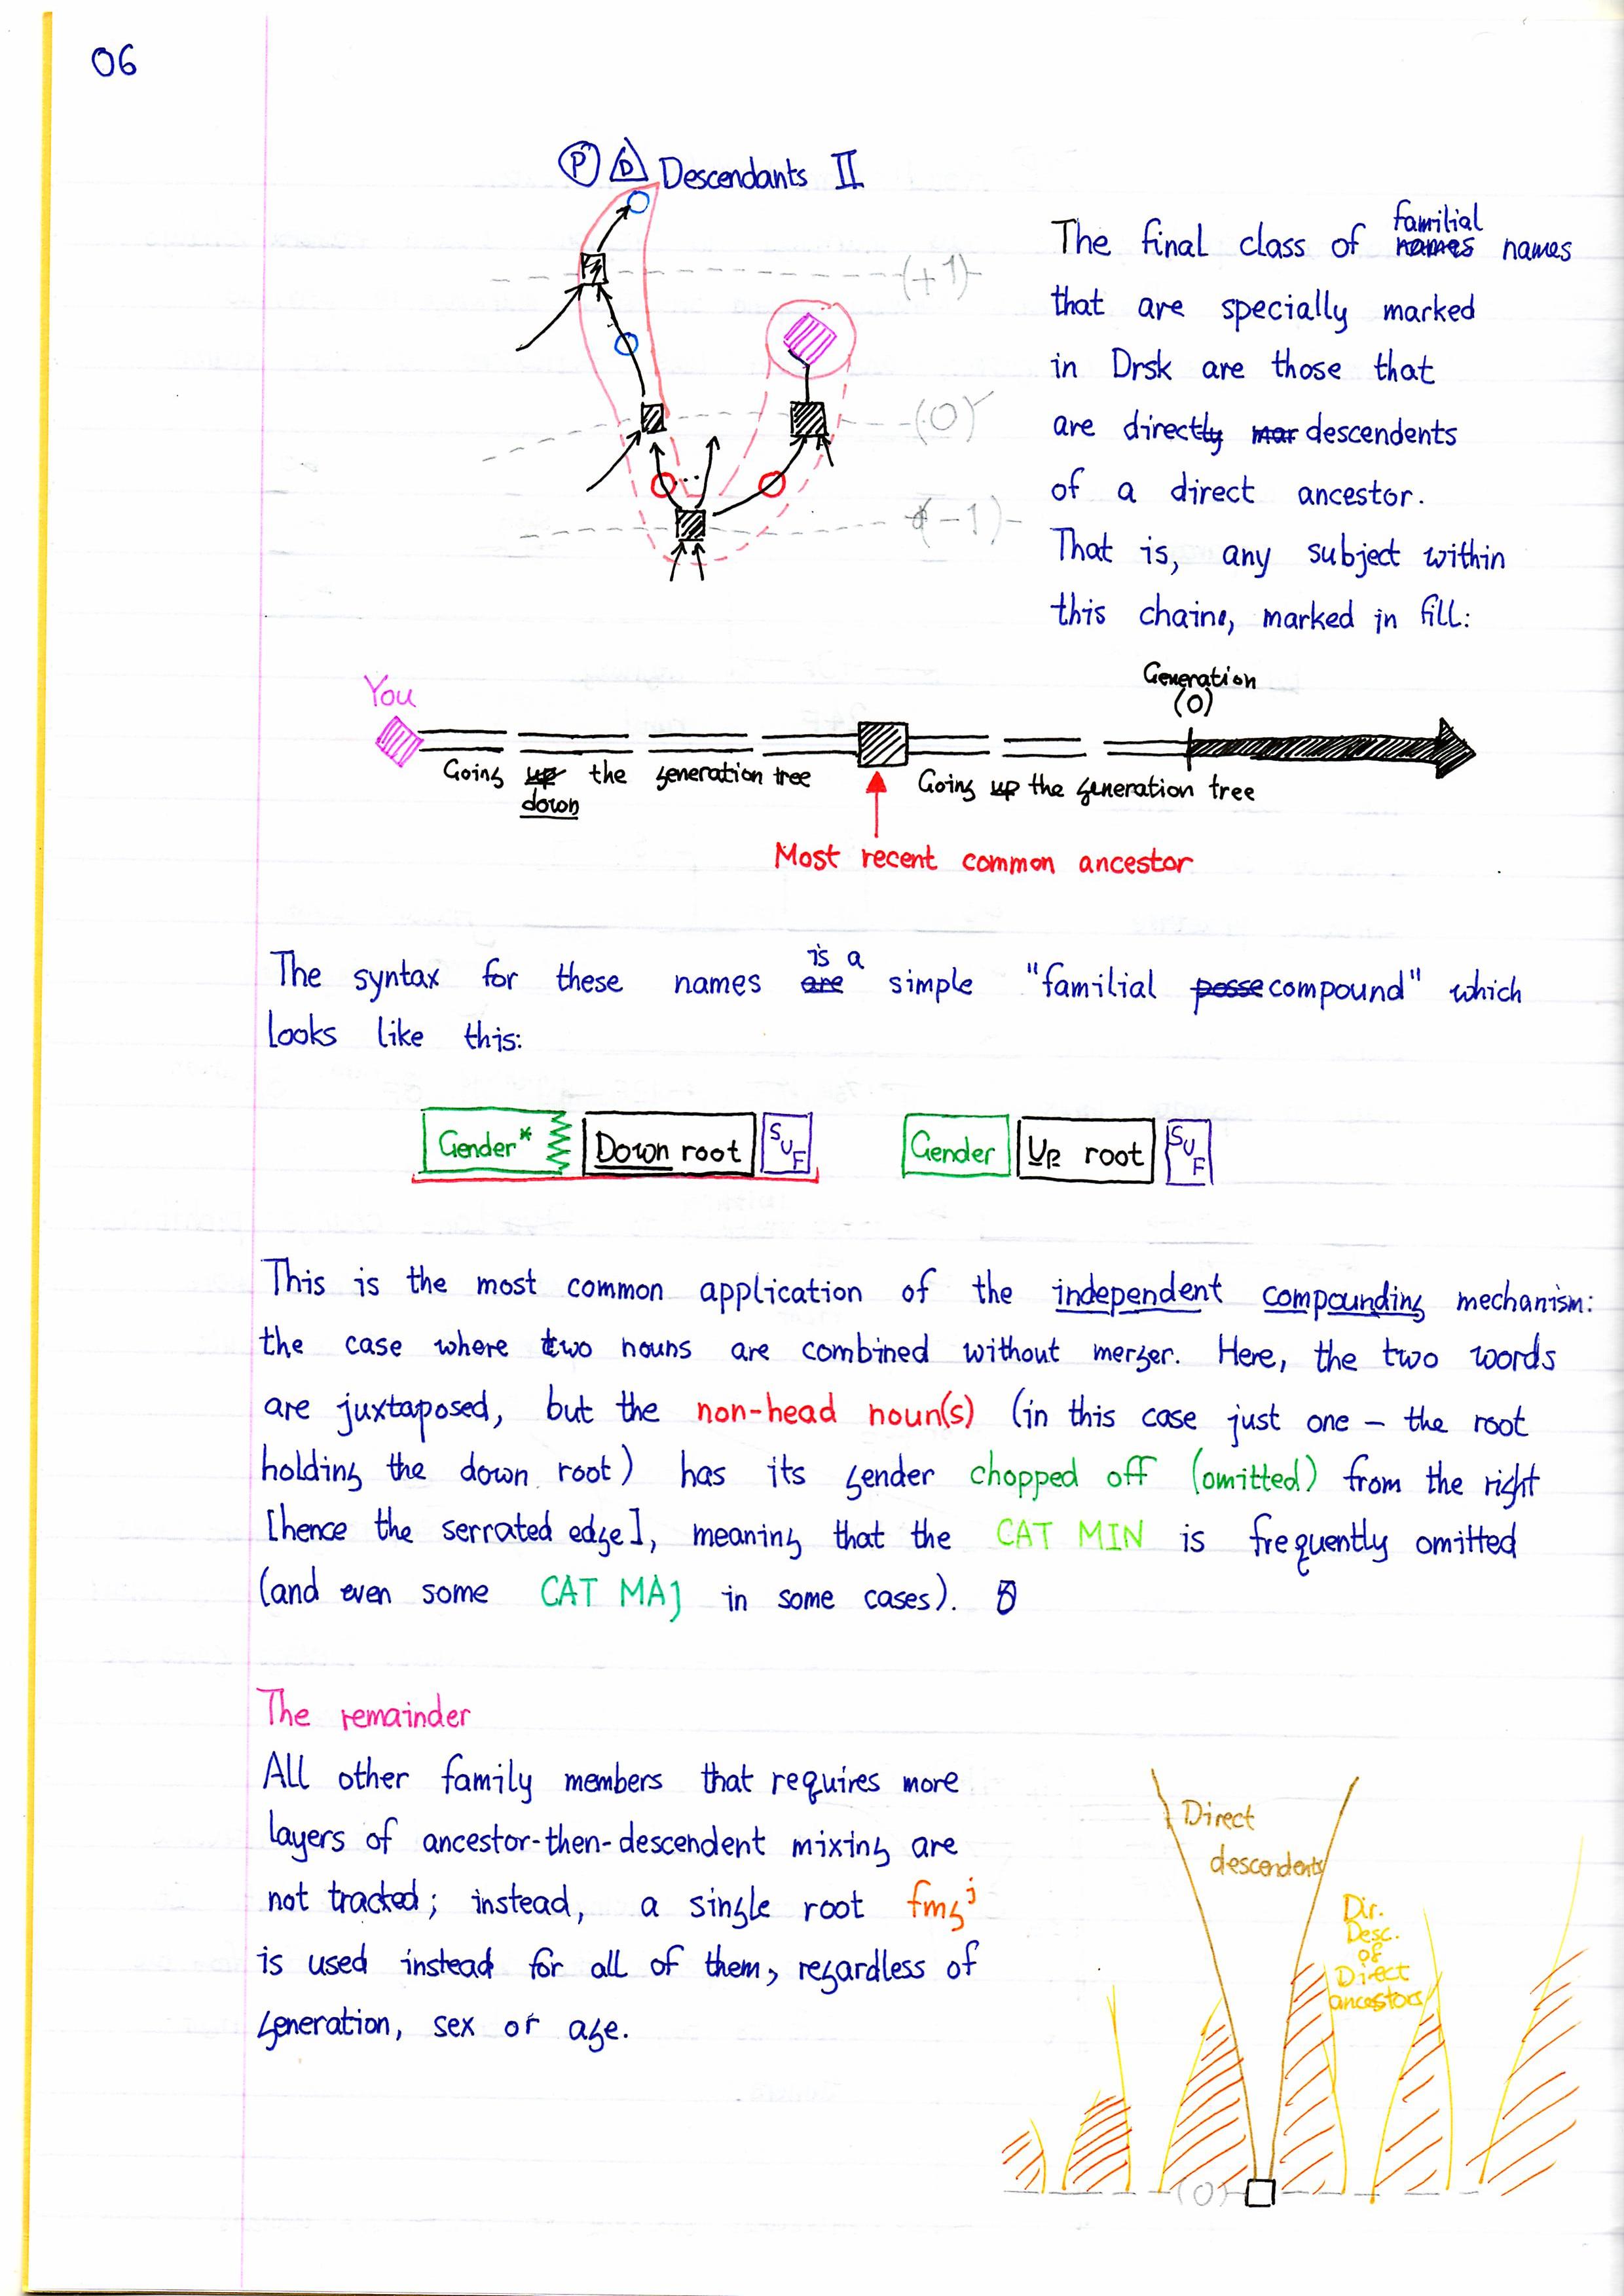 06
P D Descendants II
(+1)
(0)
(-1)
familial
The final class of names names
that are specially marked
in Drsk are those that
are directly mar descendents
of a direct ancestor.
That is, any subject within
this chain, marked in fill:
You
Generation
(0)
Going up the generation tree
down
Going up the generation tree
Most recent common ancestor
is a
The syntax for these names are simple "familial posse compound" which
looks like this:
Gender* Down root SUF Gender Up root SUF
This is the most common application of the independent compounding mechanism:
the case where two nouns are combined without merger. Here, the two words
are juxtaposed, but the non-head noun(s) (in this case just one – the root
holding the down root) has its gender chopped off (omitted) from the right
[hence the serrated edge], meaning that the CAT MIN is frequently omitted
(and even some CAT MAJ in some cases).
The remainder
All other family members that requires more
layers of ancestor-then-descendent mixing are
not tracked; instead, a single root fmgʲ
is used instead for all of them, regardless of
generation, sex or age.
Direct
descendents
Dir.
Desc.
of
Direct
ancestors
(0)